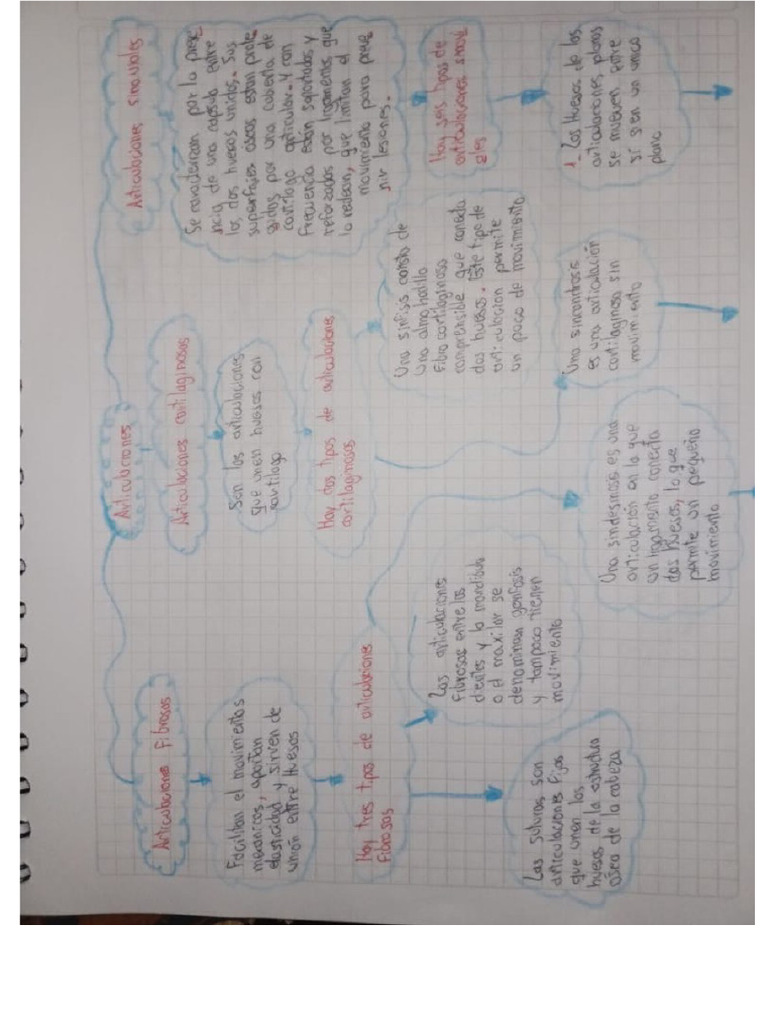 Articulaciones
Articulaciones Fibrosas
Facilitan el movimientos
mecanicos, aportan
elasticidad y sirven de
unión entre Huesos
Hay tres tipos de articulaciones
Fibrosas
Las suturas son
articulaciones fijas
que unen los
huesos de la estructura
osea de la cabeza
Las articulaciones
Fibrosas entre los
dientes y la mandibula
o el maxilar se
denominan gonfosis
y tampoco tienen
movimiento
Una sindesmosis es una
articulación en la que
un ligamento conecta
dos huesos, lo que
permite un pequeño
movimiento
Articulaciones cartilaginosas
Son las articulaciones
que unen huesos con
cartilago
Hay dos tipos de articulaciones
cartilaginosas
Una sinfisis consta de
una almohadilla
Fibrocartilaginosa
comprensible que conecta
dos huesos. Este tipo de
articulacion permite
un poco de movimiento
Una sincondrosis
es una articulación
cartilaginosa sin
movimiento
Articulaciones sinoviales
Se caracterizan por la prese
ncia de una capsula entre
los dos huesos unidos. Sus
superficies oseas estan prote
gidas por una cubierta de
cartilago articular. y con
frecuencia estan soportados y
reforzados por ligamentos que
lo rodean, que limitan el
movimiento para preve
nir lesiones.
Hay seis tipos de
articulaciones sinovi
ales
1_ Los Huesos de las
articulaciones planas
se mueven entre
sí sien un unico
plano